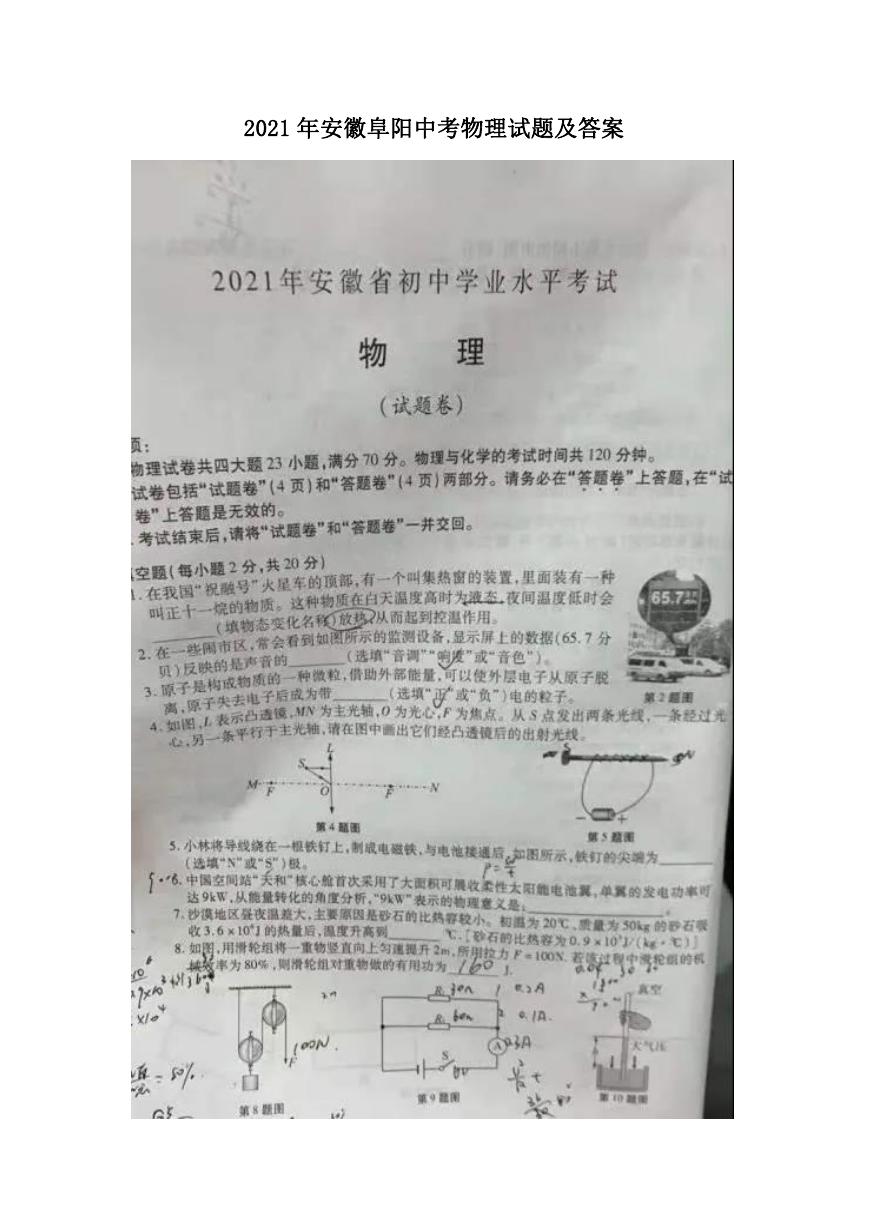 2021 年安徽阜阳中考物理试题及答案
2021年安徽省初中学业水平考试
物 理
(试题卷)
项:
物理试卷共四大题 23 小题,满分 70 分。物理与化学的考试时间共 120 分钟。
试卷包括“试题卷”(4 页)和“答题卷”(4 页)两部分。请务必在“答题卷”上答题,在“试
卷”上答题是无效的。
考试结束后,请将“试题卷”和“答题卷”一并交回。
空题(每小题 2 分,共 20 分)
1. 在我国“祝融号”火星车的顶部,有一个叫集热窗的装置,里面装有一种
叫正十一烷的物质。这种物质在白天温度高时为液态,夜间温度低时会
______(填物态变化名称)放热,从而起到控温作用。
2. 在一些闹市区,常会看到如图所示的监测设备,显示屏上的数据(65.7 分
贝)反映的是声音的______(选填“音调”“响度”或“音色”)。
65.7
3. 原子是构成物质的一种微粒,借助外部能量,可以使外层电子从原子脱
离,原子失去电子后成为带______(选填“正”或“负”)电的粒子。
第 2 题图
4. 如图,L 表示凸透镜,MN 为主光轴,O 为光心,F 为焦点。从 S 点发出两条光线,一条经过光
心,另一条平行于主光轴,请在图中画出它们经凸透镜后的出射光线。
L
S
M F O F N
S N
- +
第 4 题图
第 5 题图
5. 小林将导线绕在一根铁钉上,制成电磁铁,与电池接通后,如图所示,铁钉的尖端为______
(选填“N”或“S”)极。
6. 中国空间站“天和”核心舱首次采用了大面积可展收柔性太阳能电池翼,单翼的发电功率可
达 9kW,从能量转化的角度分析,“9kW”表示的物理意义是:______。
7. 沙漠地区昼夜温差大,主要原因是砂石的比热容较小。初温为 20℃,质量为 50kg 的砂石吸
收 3.6×10⁵J 的热量后,温度升高到______℃。[砂石的比热容为 0.9×10³J/(kg·℃)]
8. 如图,用滑轮组将一重物竖直向上匀速提升 2m,所用拉力 F=100N。若该过程中滑轮组的机
械效率为 80%,则滑轮组对重物做的有用功为 160 J.
R₁ 30Ω 0.2A
真空
R₂ 60Ω 0.1A
100N
F
A 0.3A
大气压
S 6V
= 80%
第 8 题图
第 9 题图
第 10 题图